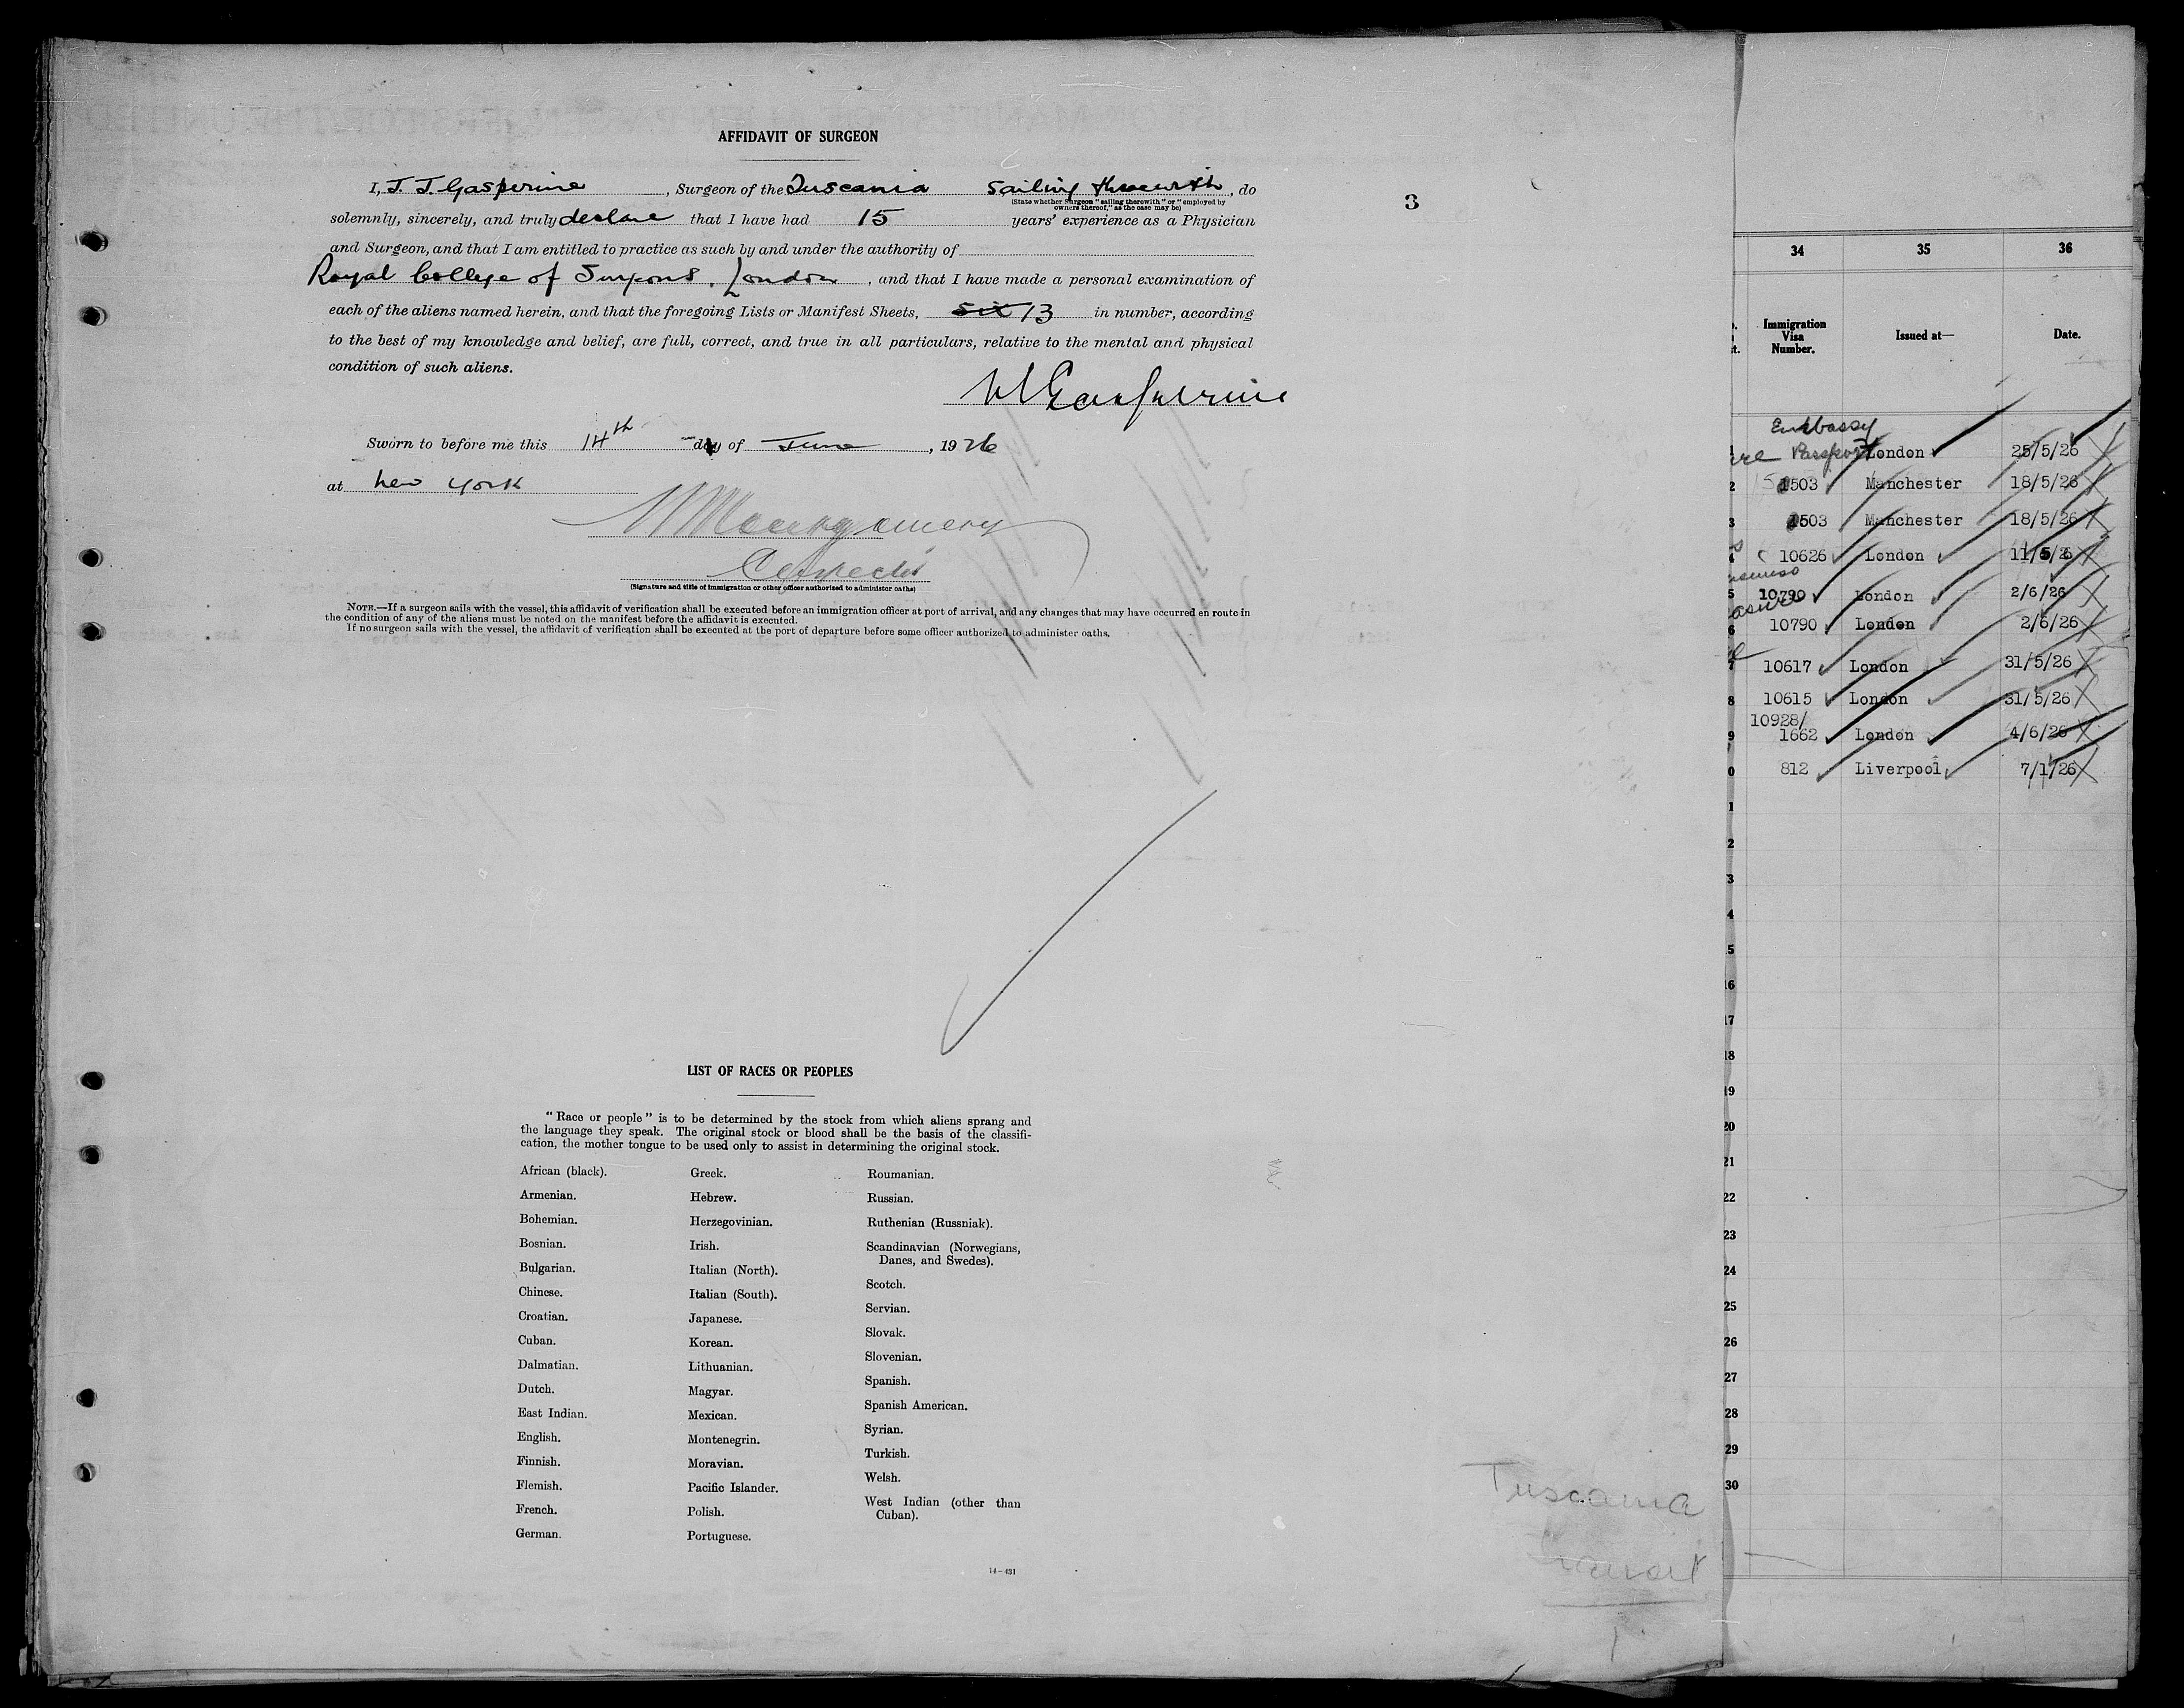 AFFIDAVIT OF SURGEON
I, J. J. Gasperine, Surgeon of the Tuscania sailing therewith, do
(State whether Surgeon "sailing therewith" or "employed by
owners thereof," as the case may be)
solemnly, sincerely, and truly declare that I have had 15 years' experience as a Physician
and Surgeon, and that I am entitled to practice as such by and under the authority of
Royal College of Surgeons, London, and that I have made a personal examination of
each of the aliens named herein, and that the foregoing Lists or Manifest Sheets, six 13 in number, according
to the best of my knowledge and belief, are full, correct, and true in all particulars, relative to the mental and physical
condition of such aliens.
Gasperine
Sworn to before me this 14th day of June, 1926
at New York
Montgomery
(Signature and title of immigration or other officer authorized to administer oaths)
NOTE.—If a surgeon sails with the vessel, this affidavit of verification shall be executed before an immigration officer at port of arrival, and any changes that may have occurred en route in
the condition of any of the aliens must be noted on the manifest before the affidavit is executed.
If no surgeon sails with the vessel, the affidavit of verification shall be executed at the port of departure before some officer authorized to administer oaths.
3
LIST OF RACES OR PEOPLES
"Race or people" is to be determined by the stock from which aliens sprang and
the language they speak. The original stock or blood shall be the basis of the classifi-
cation, the mother tongue to be used only to assist in determining the original stock.
African (black).
Armenian.
Bohemian.
Bosnian.
Bulgarian.
Chinese.
Croatian.
Cuban.
Dalmatian.
Dutch.
East Indian.
English.
Finnish.
Flemish.
French.
German.
Greek.
Hebrew.
Herzegovinian.
Irish.
Italian (North).
Italian (South).
Japanese.
Korean.
Lithuanian.
Magyar.
Mexican.
Montenegrin.
Moravian.
Pacific Islander.
Polish.
Portuguese.
Roumanian.
Russian.
Ruthenian (Russniak).
Scandinavian (Norwegians,
Danes, and Swedes).
Scotch.
Servian.
Slovak.
Slovenian.
Spanish.
Spanish American.
Syrian.
Turkish.
Welsh.
West Indian (other than
Cuban).
14—431
Tuscania
34 35 36
Immigration
Visa
Number.
Issued at—
Date.
Embassy
1 Passport London 25/5/26
2 1503 Manchester 18/5/26
3 1503 Manchester 18/5/26
4 10626 London 11/5/26
5 10790 London 2/6/26
6 10790 London 2/6/26
7 10617 London 31/5/26
8 10615 London 31/5/26
10928/
9 1662 London 4/6/26
0 812 Liverpool 7/1/26
1
2
3
4
5
16
17
18
19
20
21
22
23
24
25
26
27
28
29
30